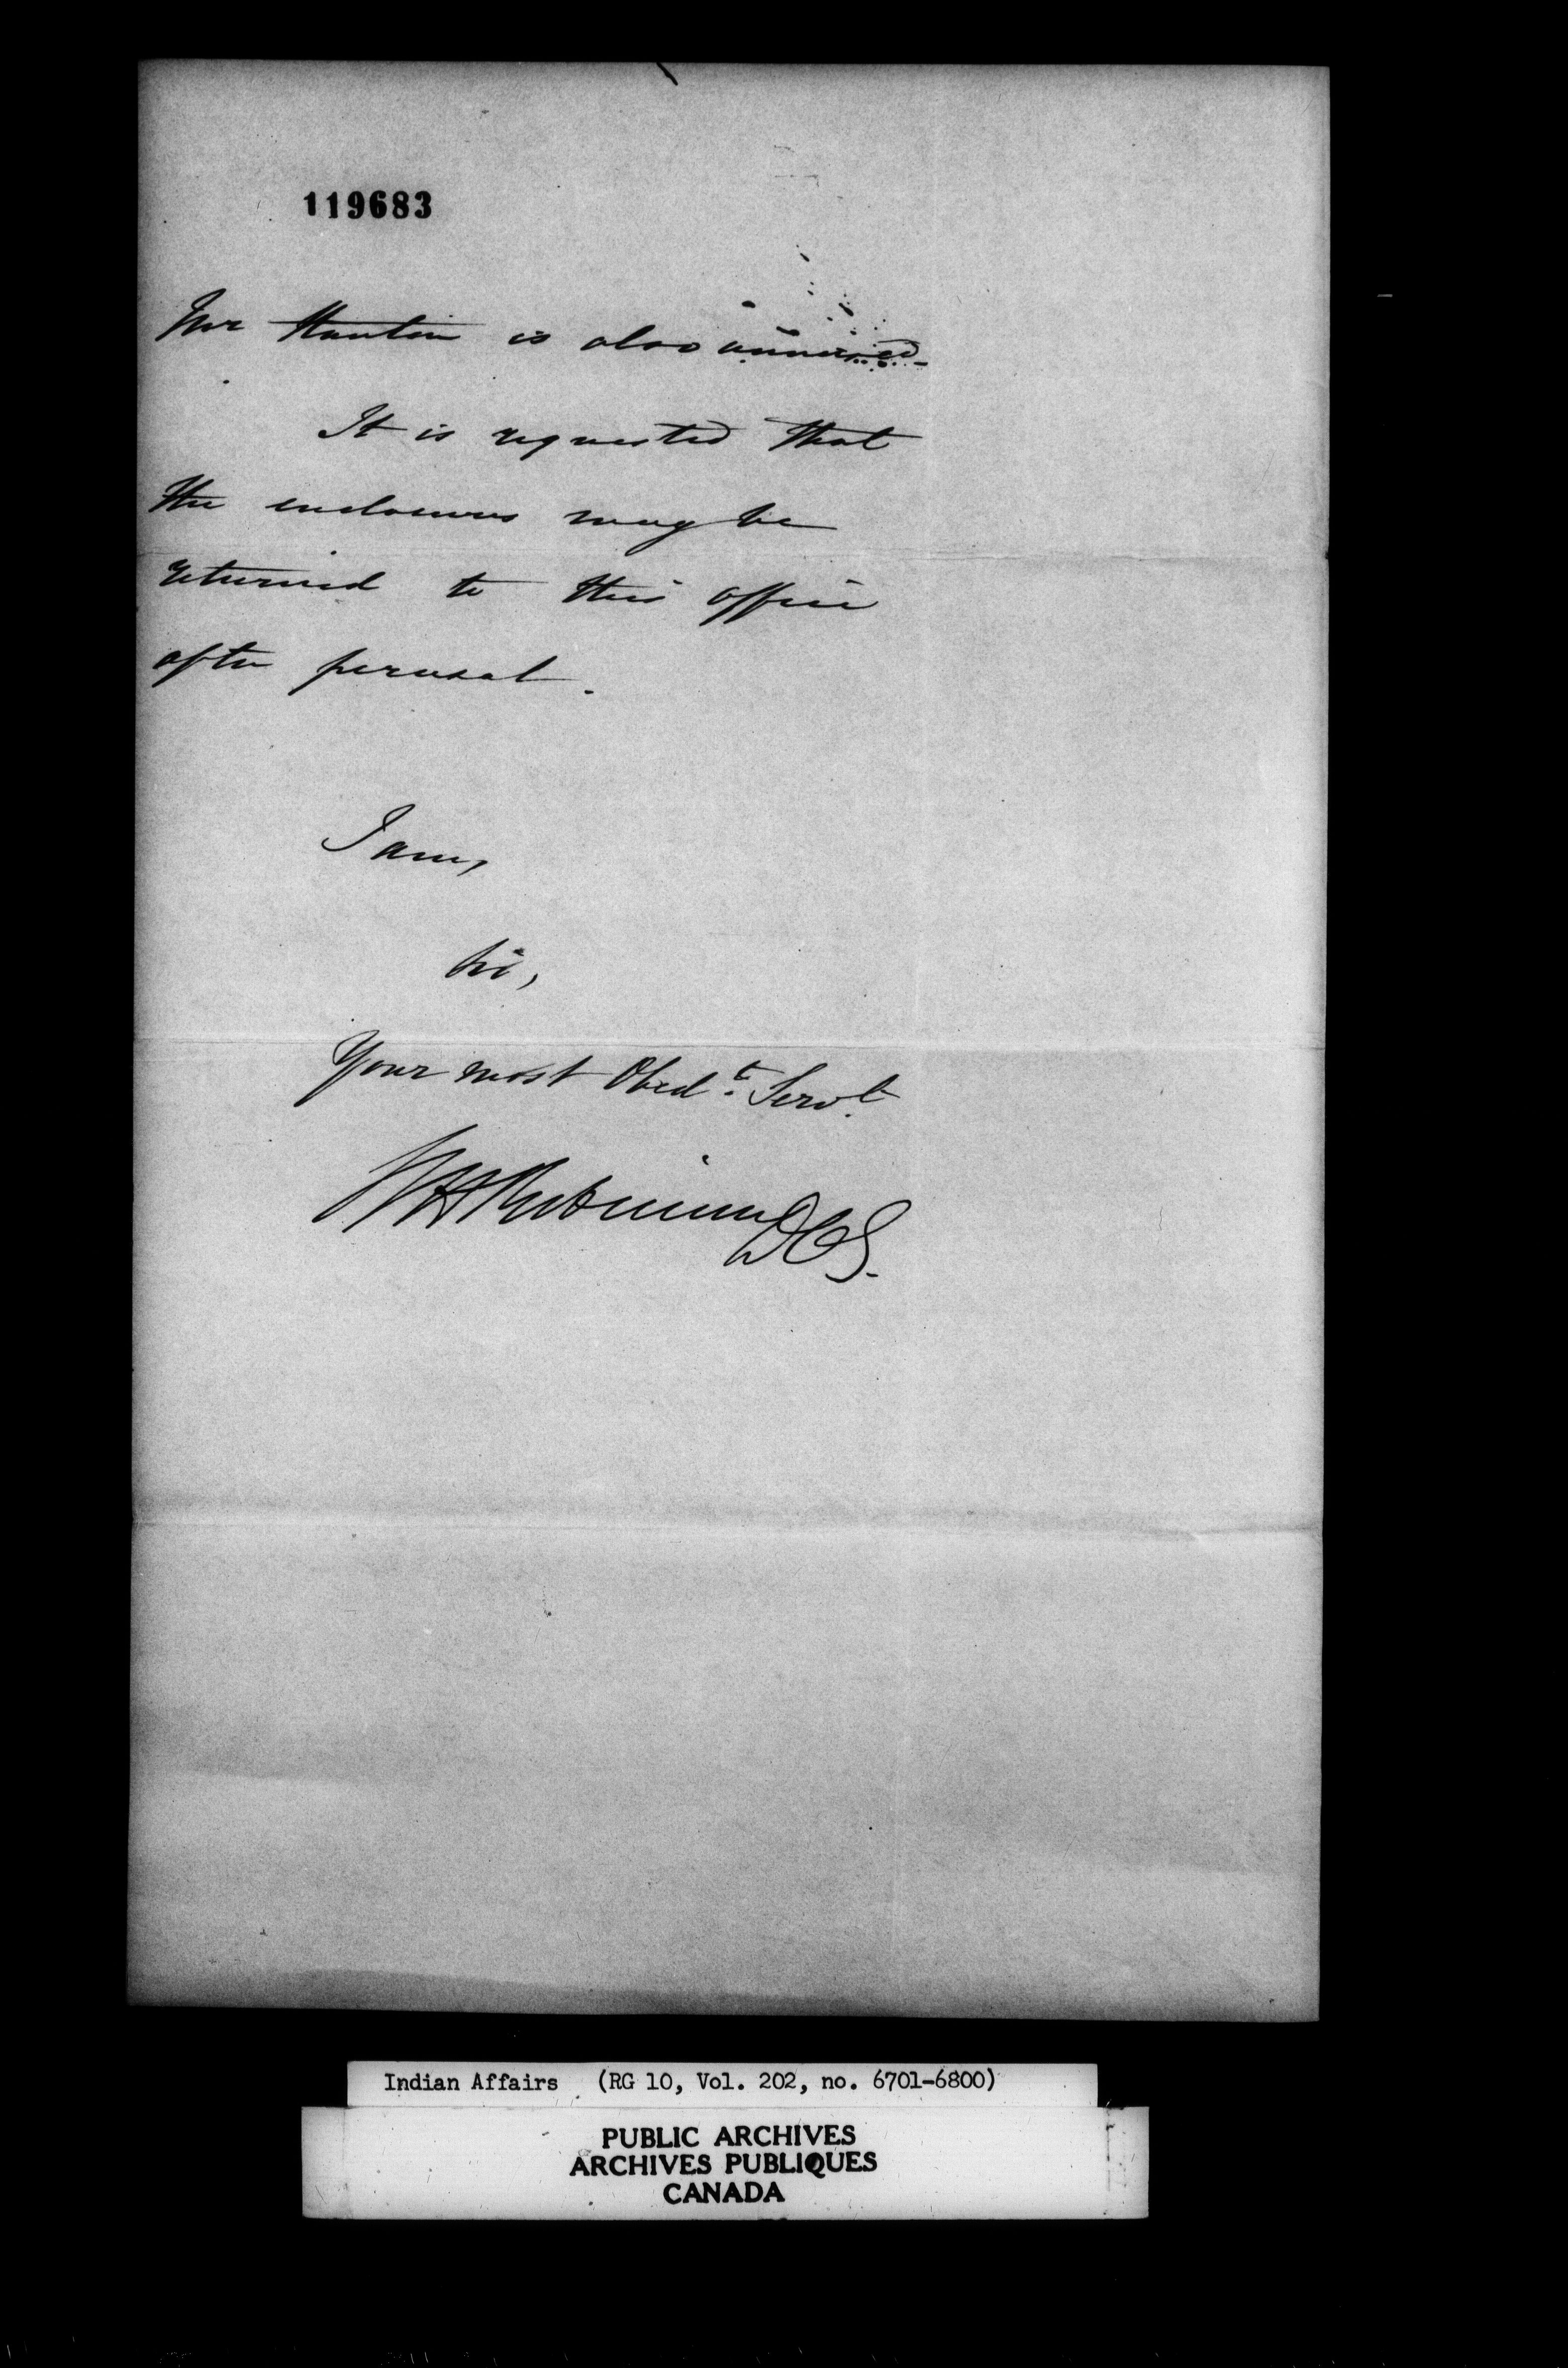 119683
Mr Stanton is also annexed
It is requested that
the enclosures may be
returned to this office
after perusal.
I am,
Sir,
Your most Obedt. Servt.
DCS.
Indian Affairs (RG 10, Vol. 202, no. 6701-6800)
PUBLIC ARCHIVES
ARCHIVES PUBLIQUES
CANADA